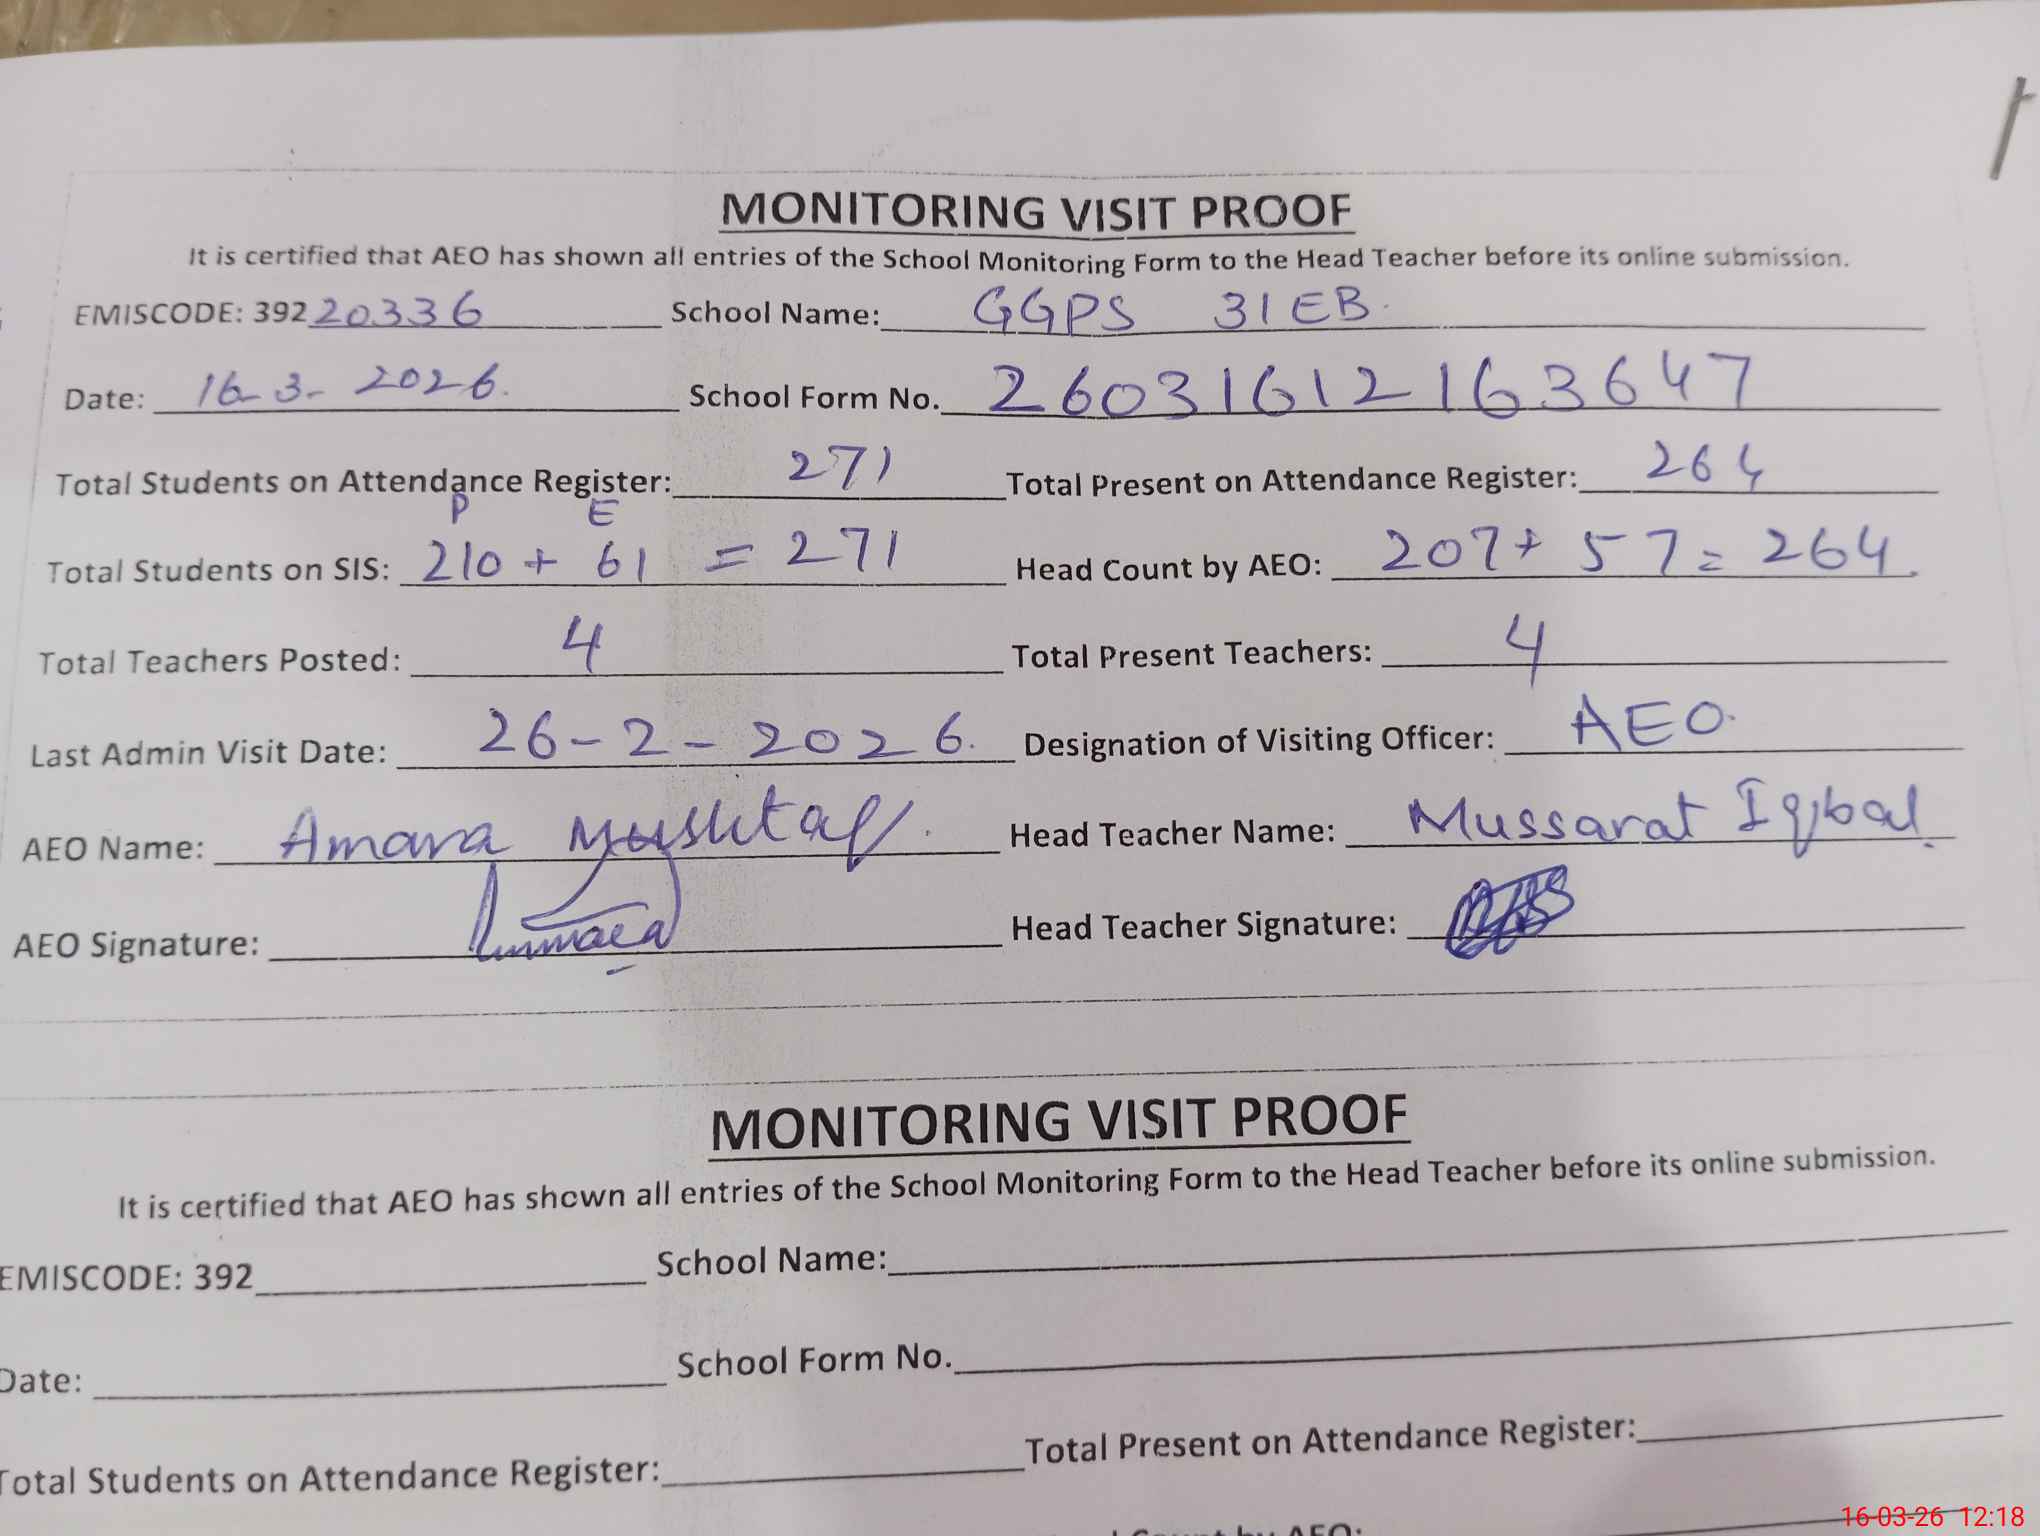 MONITORING VISIT PROOF
It is certified that AEO has shown all entries of the School Monitoring Form to the Head Teacher before its online submission.
EMISCODE: 39220336 School Name: GGPS 31EB.
Date: 16-3-2026. School Form No. 26031612163647
Total Students on Attendance Register: 271 Total Present on Attendance Register: 264
P E
Total Students on SIS: 210 + 61 = 271 Head Count by AEO: 207+ 57= 264.
Total Teachers Posted: 4 Total Present Teachers: 4
Last Admin Visit Date: 26-2-2026. Designation of Visiting Officer: AEO.
AEO Name: Amara Mushtaq. Head Teacher Name: Mussarat Iqbal.
AEO Signature: Head Teacher Signature:
MONITORING VISIT PROOF
It is certified that AEO has shown all entries of the School Monitoring Form to the Head Teacher before its online submission.
EMISCODE: 392 School Name:
Date: School Form No.
Total Students on Attendance Register: Total Present on Attendance Register:
Count by AEO:
16-03-26 12:18